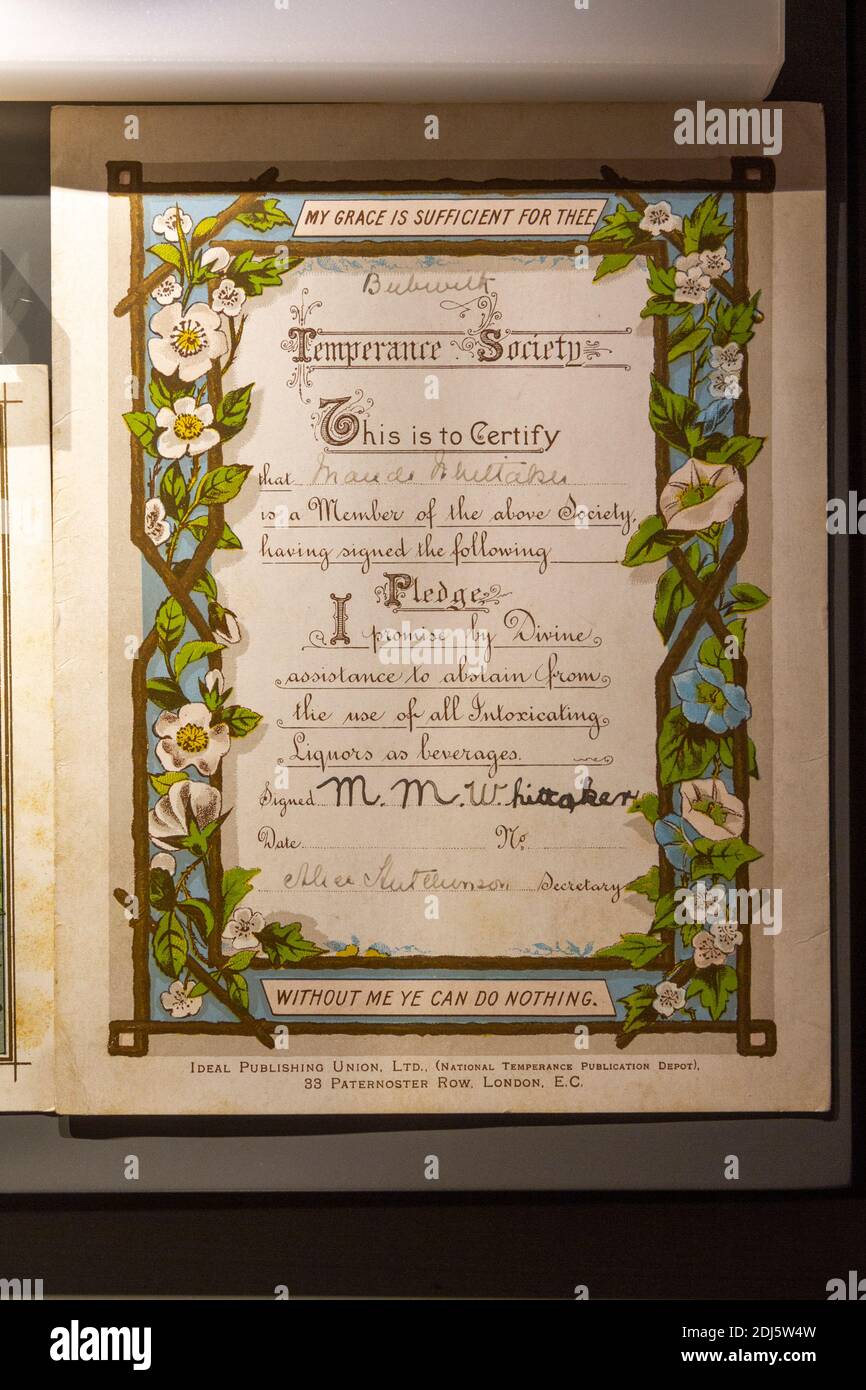 MY GRACE IS SUFFICIENT FOR THEE.
Bubwith
Temperance Society
This is to Certify
that Maude Whittaker
is a Member of the above Society,
having signed the following
Pledge
I promise by Divine
assistance to abstain from
the use of all Intoxicating
Liquors as beverages.
Signed M. M. Whittaker
Date No.
Alice Hutchinson Secretary
WITHOUT ME YE CAN DO NOTHING.
IDEAL PUBLISHING UNION, LTD., (NATIONAL TEMPERANCE PUBLICATION DEPOT),
33 PATERNOSTER ROW, LONDON, E.C.
alamy
Image ID: 2DJ5W4W
www.alamy.com